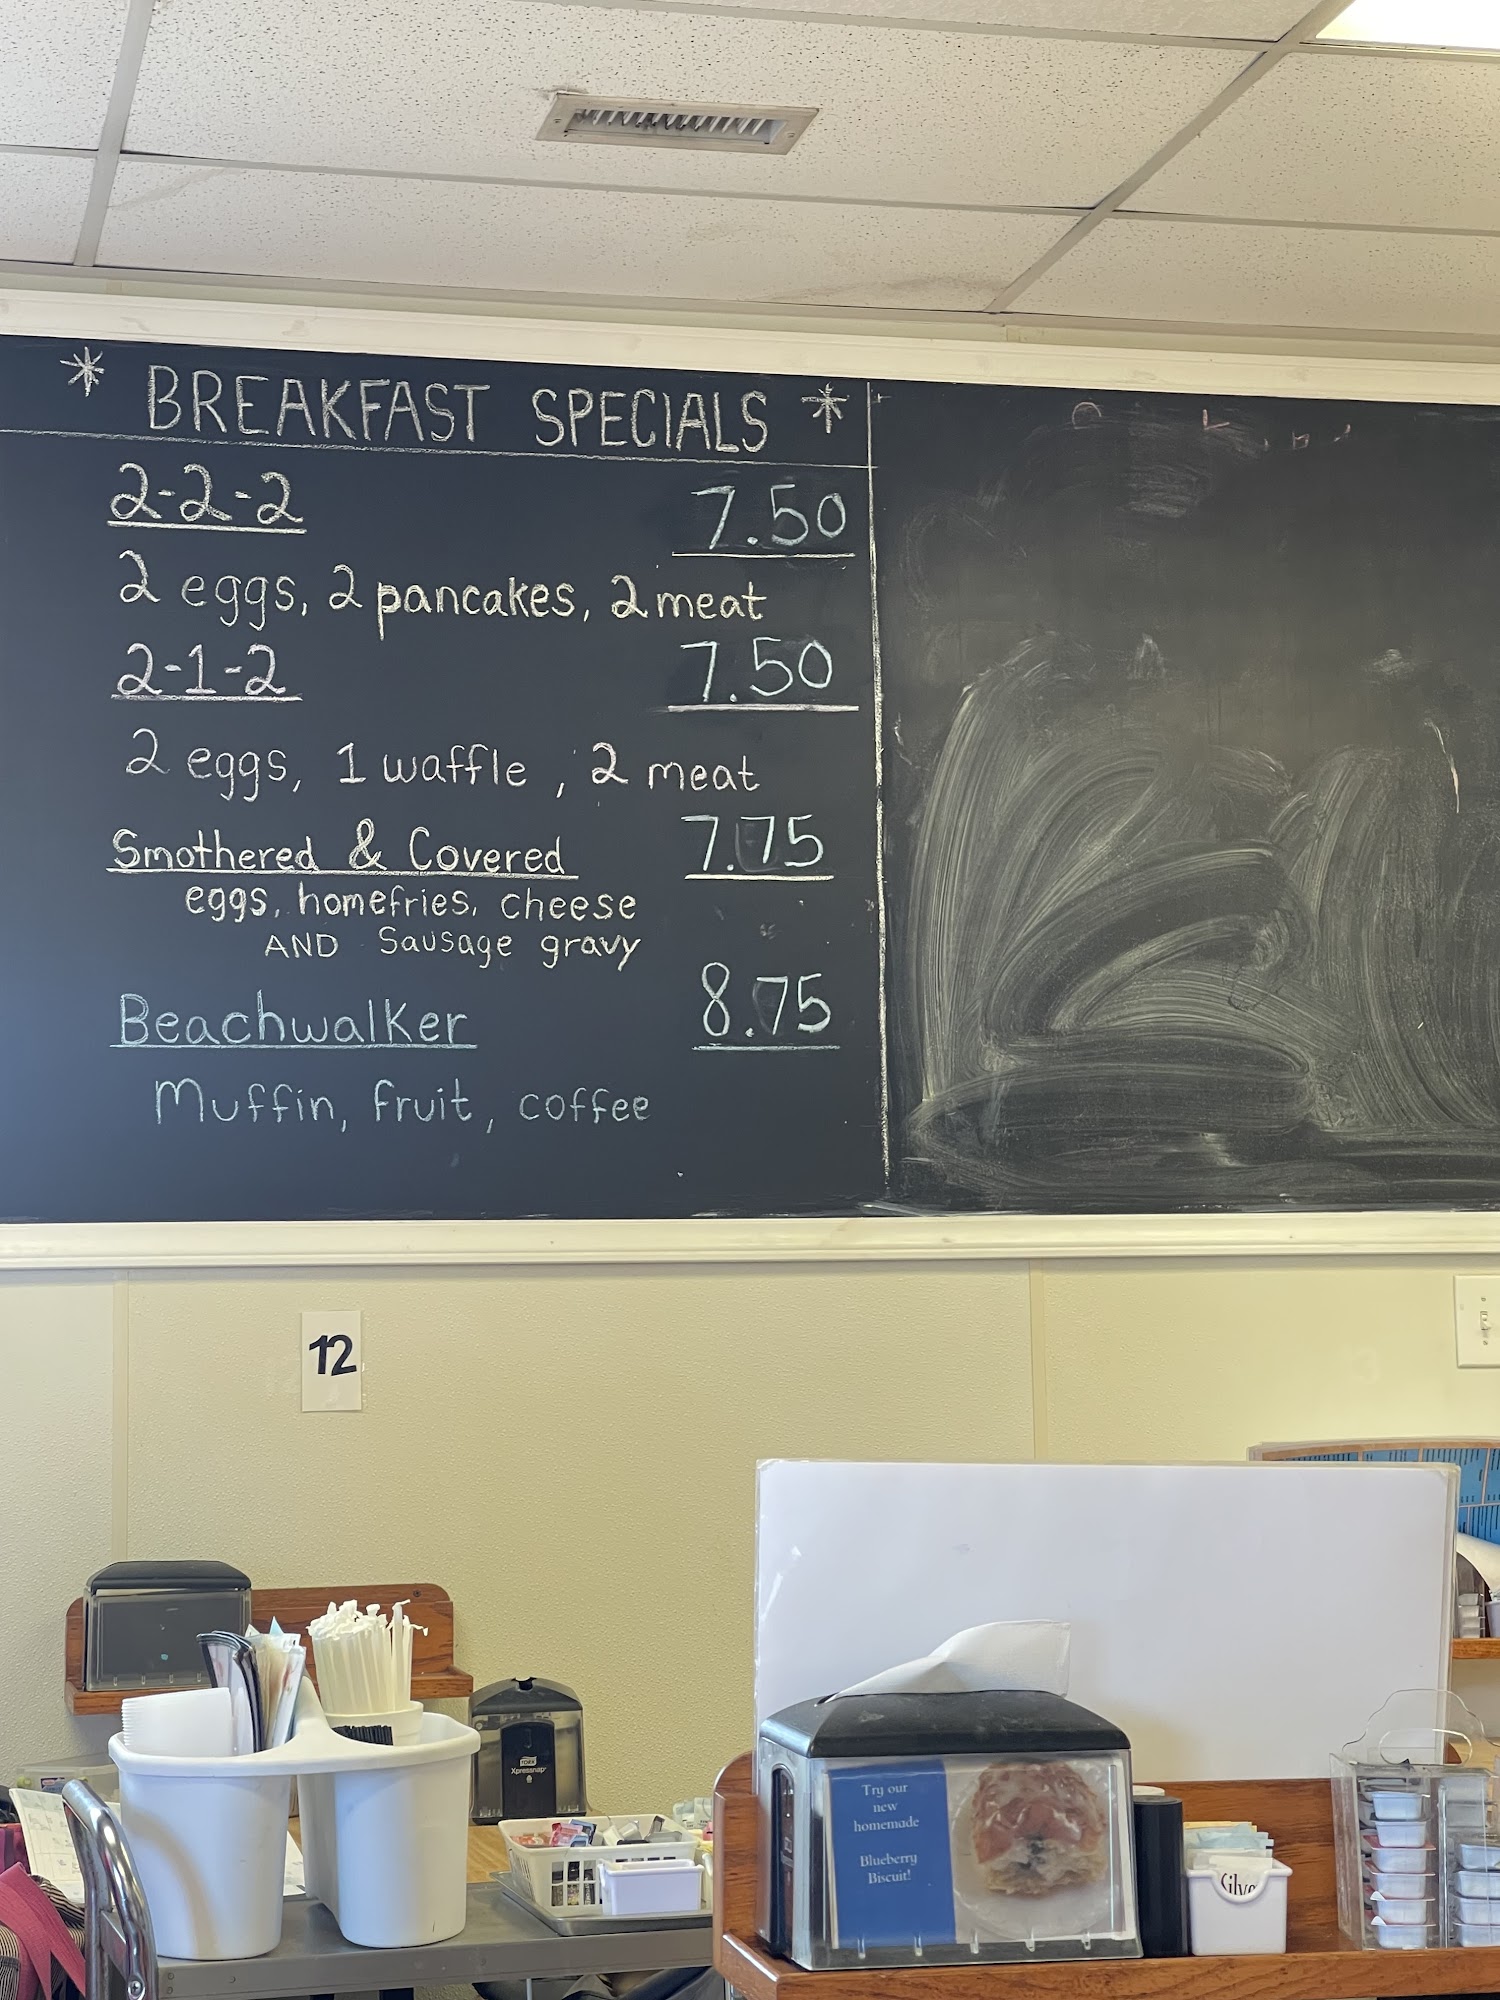 * BREAKFAST SPECIALS *
2-2-2 7.50
2 eggs, 2 pancakes, 2 meat
2-1-2 7.50
2 eggs, 1 waffle, 2 meat
Smothered & Covered 7.75
eggs, homefries, cheese
AND Sausage gravy
Beachwalker 8.75
Muffin, fruit, coffee
12
TORK
Xpressnap
Try our
new
homemade
Blueberry
Biscuit!